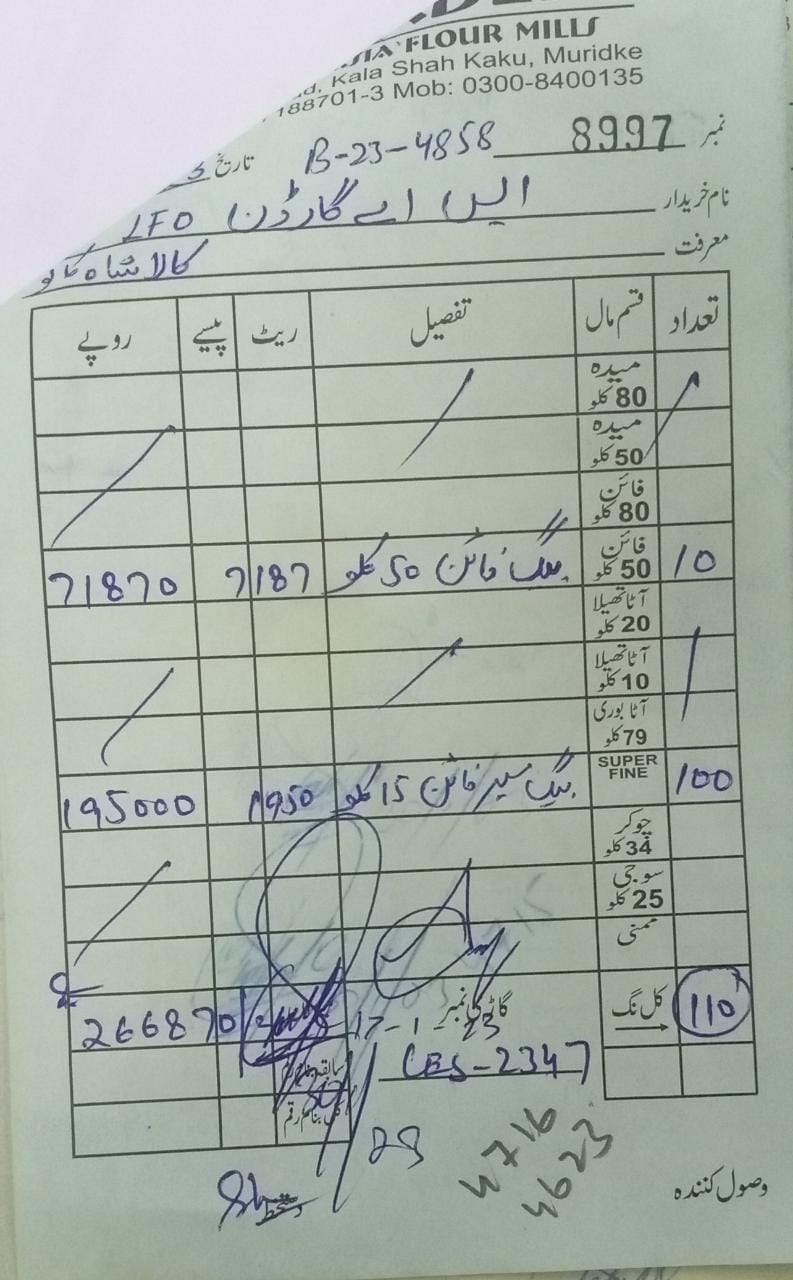 FLOUR MILLS
Kala Shah Kaku, Muridke
188701-3 Mob: 0300-8400135
نمبر 8997 B-23-4858 تاریخ
نام خریدار ایس اے گارڈن LFO
معرفت کالا شاہ کاکو
تعداد قسم مال تفصیل ریٹ پیسے روپے
میدہ 80 کلو
میدہ 50 کلو
فائن 80 کلو
10 فائن 50 کلو بیگ فائن 50 کلو 7187 71870
آٹا تھیلا 20 کلو
آٹا تھیلا 10 کلو
آٹا بوری 79 کلو
100 SUPER FINE بیگ سپر فائن 15 کلو 1950 195000
چوکر 34 کلو
سوجی 25 کلو
ممنی
110 کل نگ گاڑی نمبر 17-1-23 266870
LES-2347 سابقہ
رقم
4716
4623
دستخط
وصول کنندہ